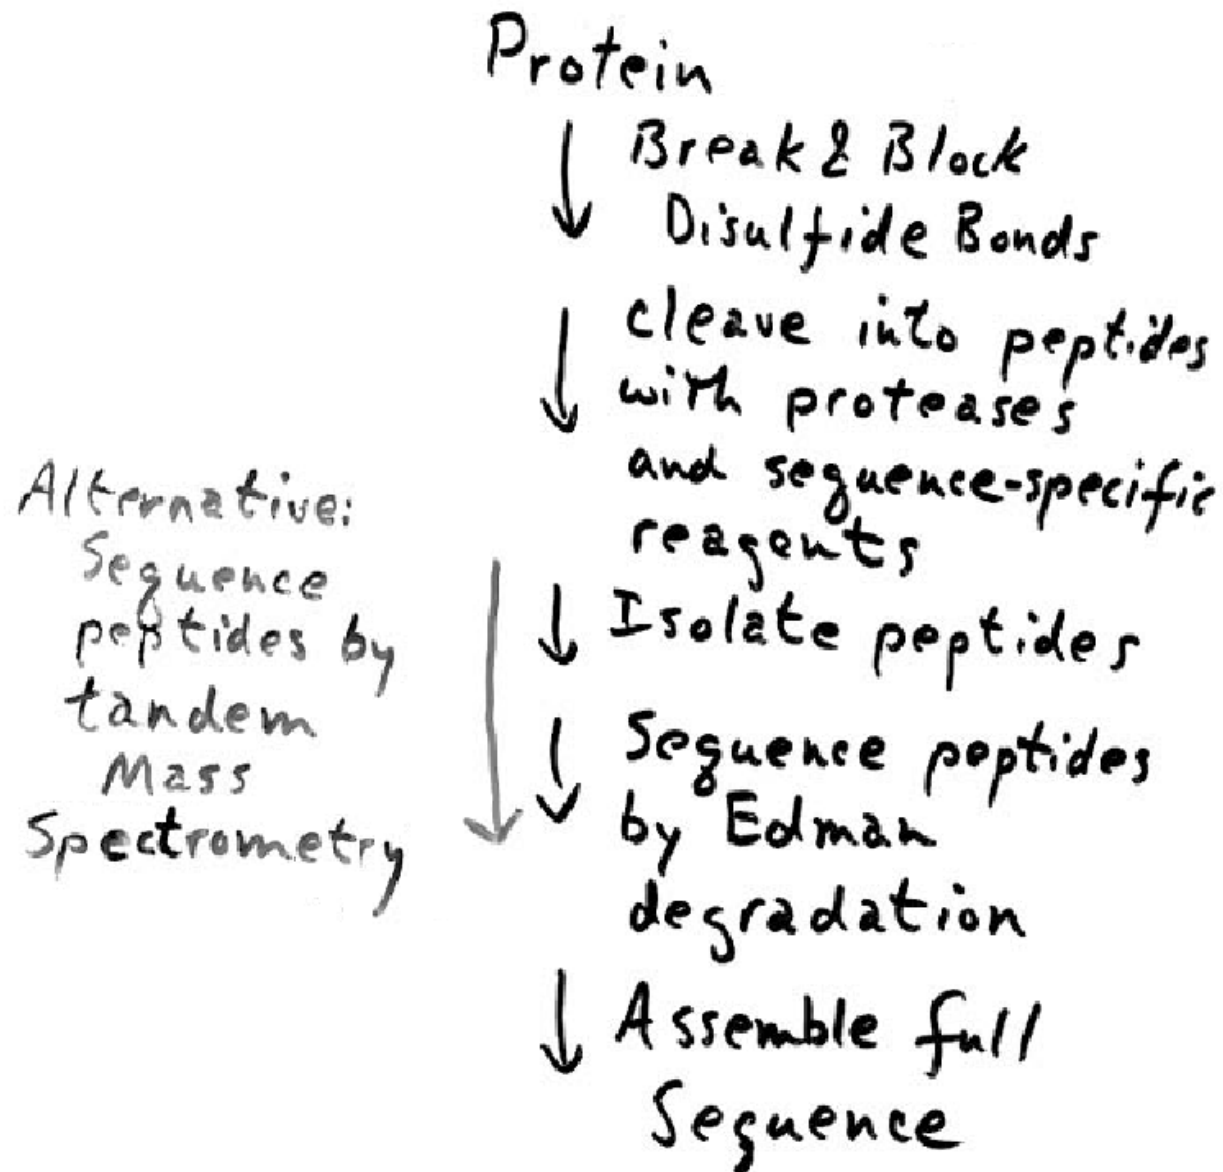 Protein
Break & Block
Disulfide Bonds
cleave into peptides
with proteases
and sequence-specific
reagents
Isolate peptides
Sequence peptides
by Edman
degradation
Assemble full
Sequence
Alternative:
Sequence
peptides by
tandem
Mass
Spectrometry